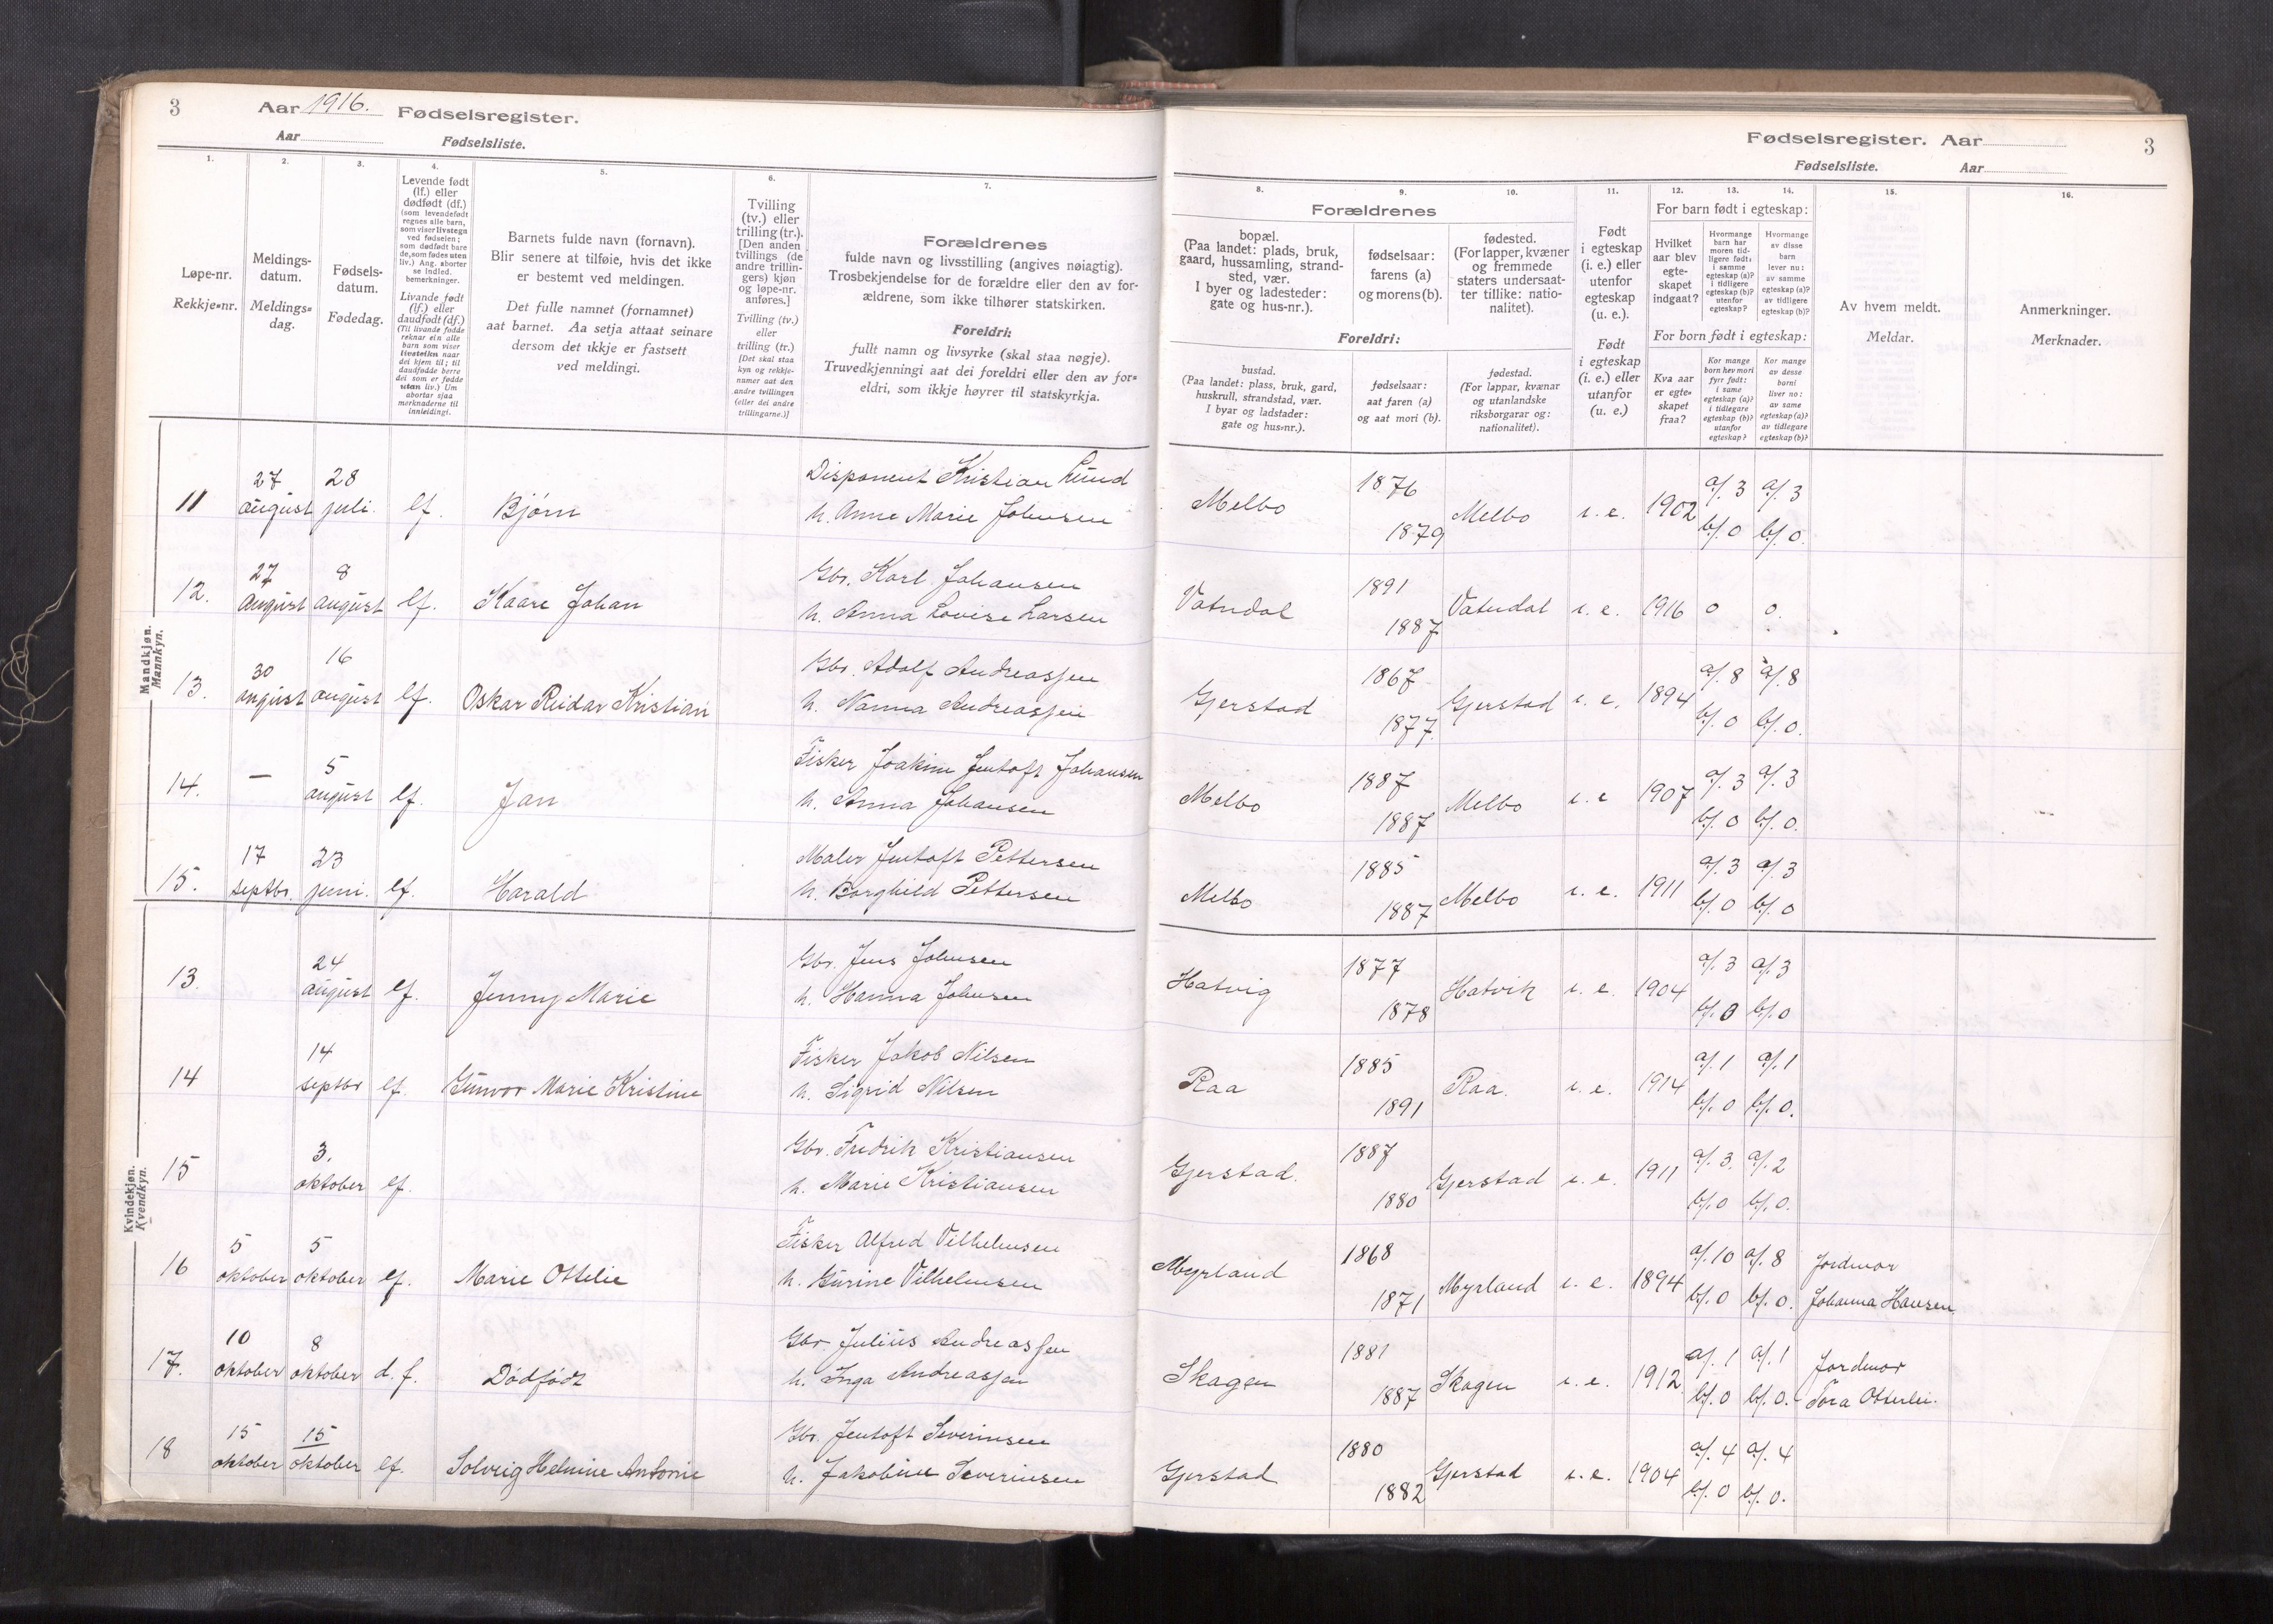 3 Aar 1916. Fødselsregister.
Aar Fødselsliste.
1.
Løpe-nr.
Rekkje=nr.
2.
Meldings-
datum.
Meldings=
dag.
3.
Fødsels-
datum.
Fødedag.
4.
Levende født
(lf.) eller
dødfødt (df.)
(som levendefødt
regnes alle barn,
som viser livstegn
ved fødselen;
som dødfødt bare
de, som fødes uten
liv.) Ang. aborter
se indled.
bemerkninger.
Livande født
(lf.) eller
daudfødt (df.)
(Til livande fødde
reknar ein alle
barn som viser
livsteikn naar
dei kjem til; til
daudfødde berre
dei som er fødde
utan liv.) Um
abortar sjaa
merknaderne til
innleidingi.
5.
Barnets fulde navn (fornavn).
Blir senere at tilføie, hvis det ikke
er bestemt ved meldingen.
Det fulle namnet (fornamnet)
aat barnet. Aa setja attaat seinare
dersom det ikkje er fastsett
ved meldingi.
6.
Tvilling
(tv.) eller
trilling (tr.).
[Den anden
tvillings (de
andre trillin-
gers) kjøn
og løpe-nr.
anføres.]
Tvilling (tv.)
eller
trilling (tr.)
[Det skal staa
kyn og rekkje-
numer aat den
andre tvillingen
(eller dei andre
trillingarne.)]
7.
Forældrenes
fulde navn og livsstilling (angives nøiagtig).
Trosbekjendelse for de forældre eller den av for-
ældrene, som ikke tilhører statskirken.
Foreldri:
fullt namn og livsyrke (skal staa nøgje).
Truvedkjenningi aat dei foreldri eller den av for=
eldri, som ikkje høyrer til statskyrkja.
Fødselsregister. Aar 3
Fødselsliste. Aar
Forældrenes
8.
bopæl.
(Paa landet: plads, bruk,
gaard, hussamling, strand-
sted, vær.
I byer og ladesteder:
gate og hus-nr.).
9.
fødselsaar:
farens (a)
og morens (b).
10.
fødested.
(For lapper, kvæner
og fremmede
staters undersaat-
ter tillike: natio-
nalitet).
Foreldri:
bustad.
(Paa landet: plass, bruk, gard,
huskrull, strandstad, vær.
I byar og ladstader:
gate og hus=nr.).
fødselsaar:
aat faren (a)
og aat mori (b).
fødestad.
(For lappar, kvænar
og utanlandske
riksborgarar og:
nationalitet).
11.
Født
i egteskap
(i. e.) eller
utenfor
egteskap
(u. e.).
Født
i egteskap
(i. e.) eller
utanfor
(u. e.)
12. 13. 14.
For barn født i egteskap:
Hvilket
aar blev
egte-
skapet
indgaat?
Hvormange
barn har
moren tid-
ligere født:
i samme
egteskap (a)?
i tidligere
egteskap (b)?
utenfor
egteskap?
Hvormange
av disse
barn
lever nu:
av samme
egteskap (a)?
av tidligere
egteskap (b)?
For born født i egteskap:
Kva aar
er egte-
skapet
fraa?
Kor mange
born hev mori
fyrr født:
i same
egteskap (a)?
i tidlegare
egteskap (b)?
utanfor
egteskap?
Kor mange
av desse
borni
liver no:
av same
egteskap (a)?
av tidlegare
egteskap (b)?
15.
Av hvem meldt.
Meldar.
16.
Anmerkninger.
Merknader.
Mandkjøn.
Mannkyn.
27 28 Disponent Kristian Lund 1876 a/. 3 a/. 3
11 august juli. lf. Bjørn h. Anne Marie Johnsen Melbo 1879 Melbo i. e. 1902 b/. 0 b/. 0.
27 8 Gbr. Karl Johansen 1891
12. august august lf. Kaare Johan h. Anna Lovise Larsen Vatndal 1887 Vatndal i. e. 1916 0 0.
30 16 Gbr. Adolf Andreassen 1867 a/. 8 a/. 8
13. august august lf. Oskar Reidar Kristian h. Nanna Andreassen Gjerstad 1877 Gjerstad i. e. 1894 b/. 0 b/. 0.
5 Fisker Joakim Jentoft Johansen 1887 a/. 3 a/. 3
14. — august lf. Jan h. Anna Johansen Melbo 1887 Melbo i. e 1907 b/. 0 b/. 0.
17 23 Maler Jentoft Pettersen 1885 a/. 3 a/. 3
15. septbr. juni. lf. Harald h. Borghild Pettersen Melbo 1887 Melbo i. e. 1911 b/. 0 b/. 0
Kvindekjøn.
Kvendkyn.
24 Gbr. Jens Johnsen 1877 a/. 3 a/. 3
13. august lf. Jenny Marie h. Hanna Johnsen Hatvig 1878 Hatvik i. e. 1904 b/. 0 b/. 0
14 Fisker Jakob Nilsen 1885 a/. 1 a/. 1
14 septbr lf. Gunvor Marie Kristine h. Sigrid Nilsen Raa 1891 Raa. i. e. 1914 b/. 0 b/. 0.
3. Gbr. Fredrik Kristiansen 1887 a/. 3. a/. 2
15 oktober lf. h. Marie Kristiansen Gjerstad. 1880 Gjerstad i. e. 1911 b/. 0 b/. 0.
5 5 Fisker Alfred Vilhelmsen 1868 a/. 10 a/. 8 Jordmor
16 oktober oktober lf. Marie Ottilie h. Gurine Vilhelmsen Myrland 1871 Myrland i. e. 1894 b/. 0 b/. 0. Johanna Hansen.
10 8 Gbr. Julius Andreassen 1881 a/. 1 a/. 1 Jordmor
17. oktober oktober d. f. Dødfødt h. Inga Andreassen Skagen 1887 Skagen i. e. 1912. b/. 0 b/. 0. Tora Otterlei.
15 15 Gbr. Jentoft Severinsen 1880 a/. 4 a/. 4
18 oktober oktober lf. Solveig Helmine Antonie h. Jakobine Severinsen Gjerstad 1882 Gjerstad i. e. 1904 b/. 0 b/. 0.